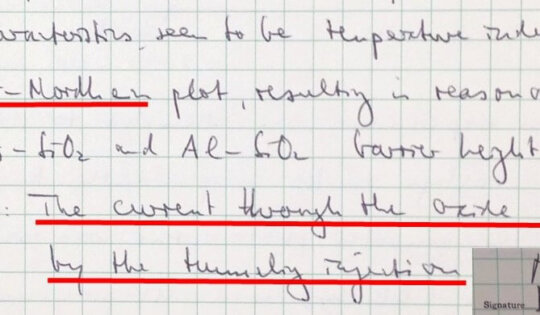 seen to be temperature
-Nordheim plot, resulting in reason
-SiO₂ and Al-SiO₂ barrier height
: The current through the oxide
by the tunneling injection
Signature